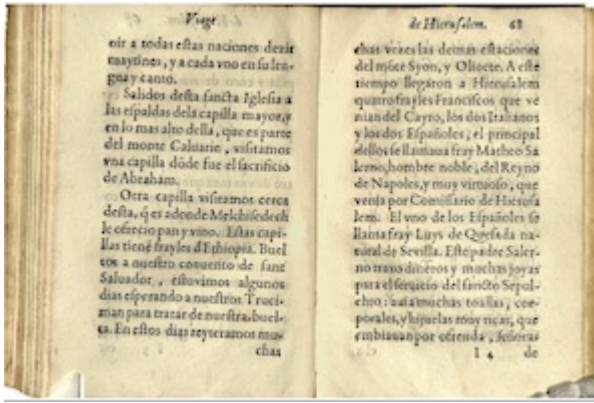 Viage
oir a todas estas naciones dezir
maytines, y a cada vno en su len-
gua y canto.
Salidos desta sancta Iglesia a
las espaldas dela capilla mayor, y
en lo mas alto della, que es parte
del monte Caluario, visitamos
vna capilla dõde fue el sacrificio
de Abraham.
Otra capilla visitamos cerca
desta, q̃ es adonde Melchisedech
le ofrecio pan y vino. Estas capi-
llas tienẽ frayles d'Ethiopia. Buel
tos a nuestro conuento de sant
Saluador, estuuimos algunos
dias esperando a nuestros Truci-
man para tratar de nuestra buel-
ta. En estos dias reyteramos mu-
chas
de Hierusalem. 68
chas vezes las demas estaciones
del mõte Syon, y Oliuete. A este
tiempo llegaron a Hierusalem
quatro frayles Franciscos que ve
nian del Cayro, los dos Italianos
y los dos Españoles, el principal
dellos se llamaua fray Matheo Sa
lerno, hombre noble, del Reyno
de Napoles, y muy virtuoso, que
venia por Comissario de Hierusa
lem. El vno de los Españoles se
llama fray Luys de Quesada na-
tural de Seuilla. Este padre Saler-
no traxo dineros y muchas joyas
para el seruicio del sancto Sepul-
chro: auia muchas toallas, cor-
porales, y hijuelas muy ricas, que
embiauan por ofrenda, señoras
I 4 de